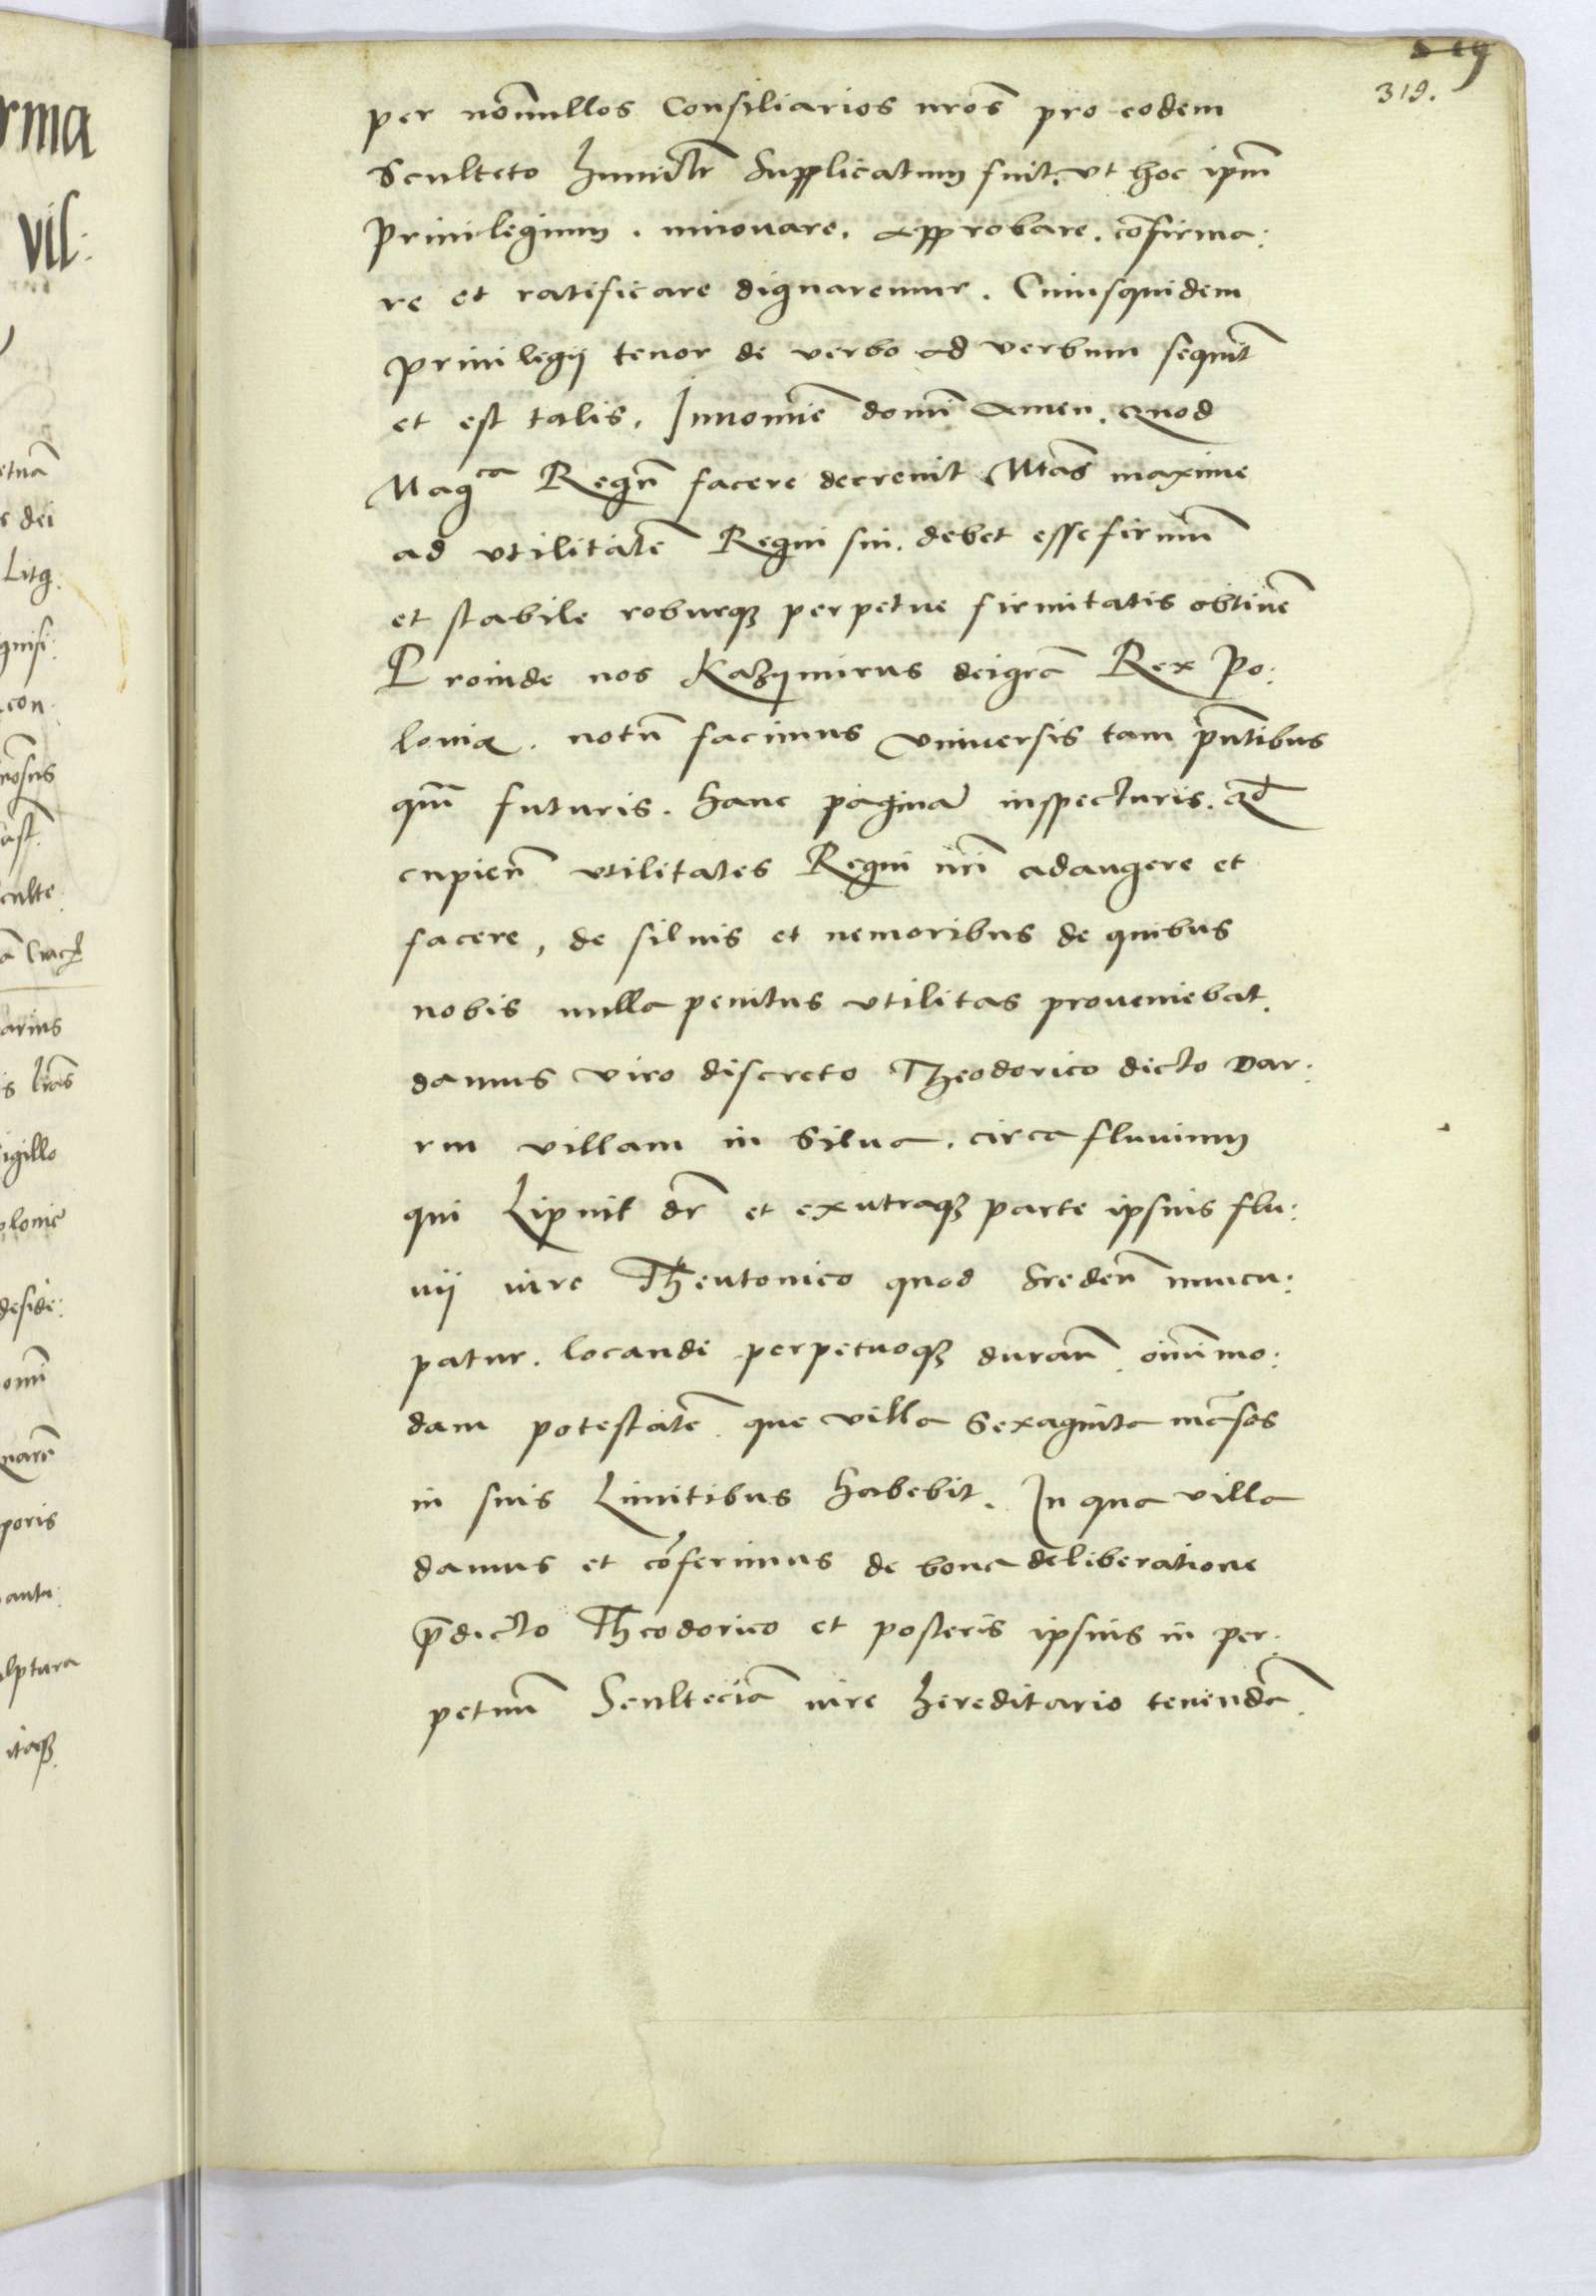 319.
per nonnullos Consiliarios nros̄ pro eodem
Sculteto humilr̄ Supplicatum fuit, vt hoc ipm̄
Priuilegium . innouare . approbare . cōfirma:
re et ratificare dignaremur . Cuiusquidem
priuilegij tenor de verbo ad verbum sequit̄
et est talis . Innomīe domī amen . quod
Mag^ca Regū facere decreuit Mtās maxime
ad vtilitatē Regni sui . debet esse firmū
et stabile roburqȝ perpetue firmitatis obtinē
Proinde nos Kazymirus deigrā Rex Po:
loniæ . notū facimus vniuersis tam pn̄tibus
qm̄ futuris . hanc paginā inspecturis . qd̄
cupien̄ vtilitates Regni nr̄i adaugere et
facere , de siluis et nemoribus de quibus
nobis nulla penitus vtilitas proueniebat .
damus viro discreto Theodorico dicto Dar:
rm villam in Silua . circa fluuium
qui Lipnik dr̄ et exutraqȝ parte ipsius flu:
uij iure Theutonico quod Sreden̄ nuncu:
patur . locandi perpetuoqȝ duran̄ . om̄imo:
dam potestatē . que villa Sexaginta māsos
in suis Limitibus habebit . In qua villa
damus et cōferimus de bona deliberatione
p̄dicto Theodorico et posteris ipsius in per:
petuū Sculteciā iure hereditario tenendā .
rma
vil:
etuā
dei
Litg.
gnifi:
con:
culte:
arius
is lrās
igillo
olonie
deside:
omī
narē
poris
antu:
ulptura
itaqȝ